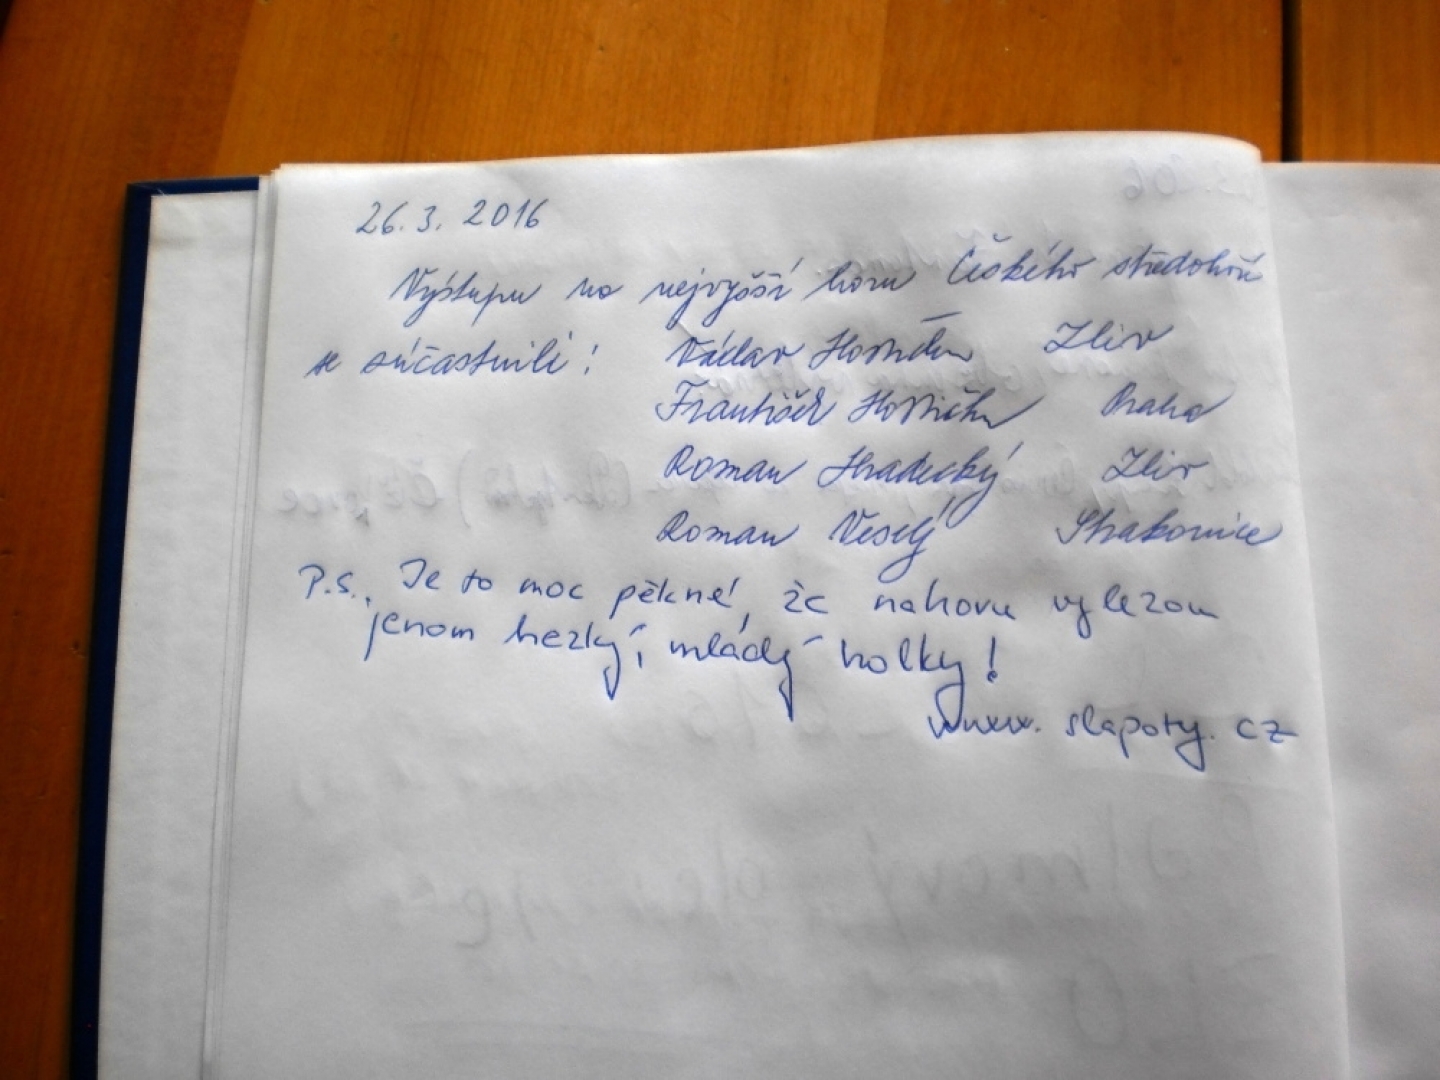 26. 3. 2016
Výstupu na nejvyšší horu Českého středohoří
se súčastnili: Václav Zliv
František Praha
Roman Hradecký Zliv
Roman Veselý Strakonice
P.S. Je to moc pěkné, že nahoru vylezou
jenom hezký, mladý holky!
www.slapoty.cz